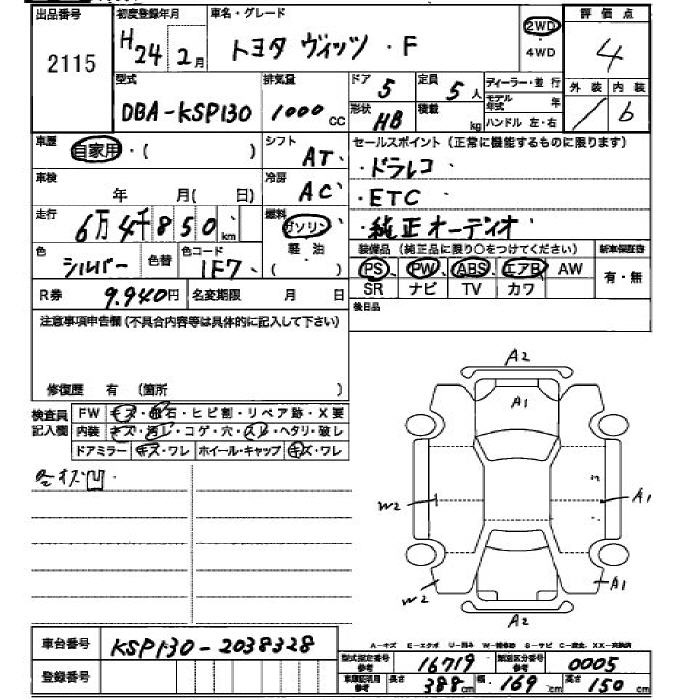 出品番号 初度登録年月 車名・グレード 評価点
2115 H24 2月 トヨタ ヴィッツ・F 2WD・4WD 4
型式 排気量 ドア 5 定員 5人 ディーラー・並行 外装 内装
DBA-KSP130 1000cc 形状 HB 積載 kg モデル年式 年 ハンドル 左・右 / b
車歴 自家用・( ) シフト AT セールスポイント(正常に機能するものに限ります)
車検 年 月( 日) 冷房 AC ・ドラレコ
・ETC
走行 6万4千850km 燃料 ガソリン 軽油 ( ) ・純正オーディオ
色 シルバー 色替 色コード 1F7 装備品(純正品に限り○をつけてください) 新車保証書
PS PW ABS エアB AW 有・無
SR ナビ TV カワ
R券 9.940円 名変期限 月 日 後日品
注意事項申告欄(不具合内容等は具体的に記入して下さい)
修復歴 有 (箇所 )
検査員記入欄 FW キズ・飛石・ヒビ割・リペア跡・X要
内装 キズ・汚レ・コゲ・穴・スレ・ヘタリ・破レ
ドアミラー キズ・ワレ ホイール・キャップ キズ・ワレ
A2
A1
W2 A1
W2 A1
A2
車台番号 KSP130-2038328
A-キズ E-エクボ U-凹ミ W-補修跡 S-サビ C-腐食 XX-交換済
型式指定番号 参考 16719 類別区分番号 参考 0005
登録番号 車庫証明用 参考 長さ 388cm 幅 169cm 高さ 150cm